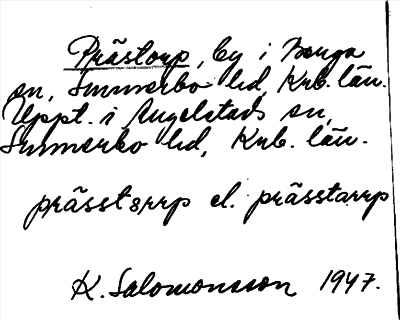 Prästorp, by i Berga
sn, Sunnerbo hd, Krb. län.
Uppt. i Angelstads sn,
Sunnerbo hd, Krb. län.
prässtɜrrp el. prässtarrp
K. Salomonsson 1947.